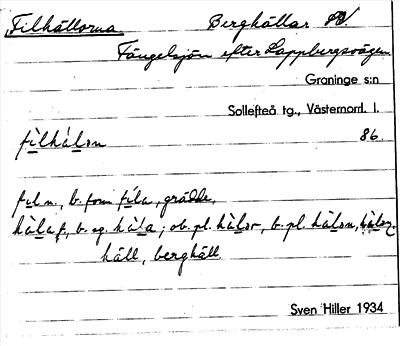 Filhällorna. Berghällar
Fängelsjön efter Lappbergsvägen.
Graninge s:n
Sollefteå tg., Västernorrl. l.
fìlhálon 86.
fil n., b. form fíla, grädde,
hàla f., b. sg. há'la; ob. pl. hàlor, b. pl. hàlon,
häll, berghäll.
Sven Hiller 1934